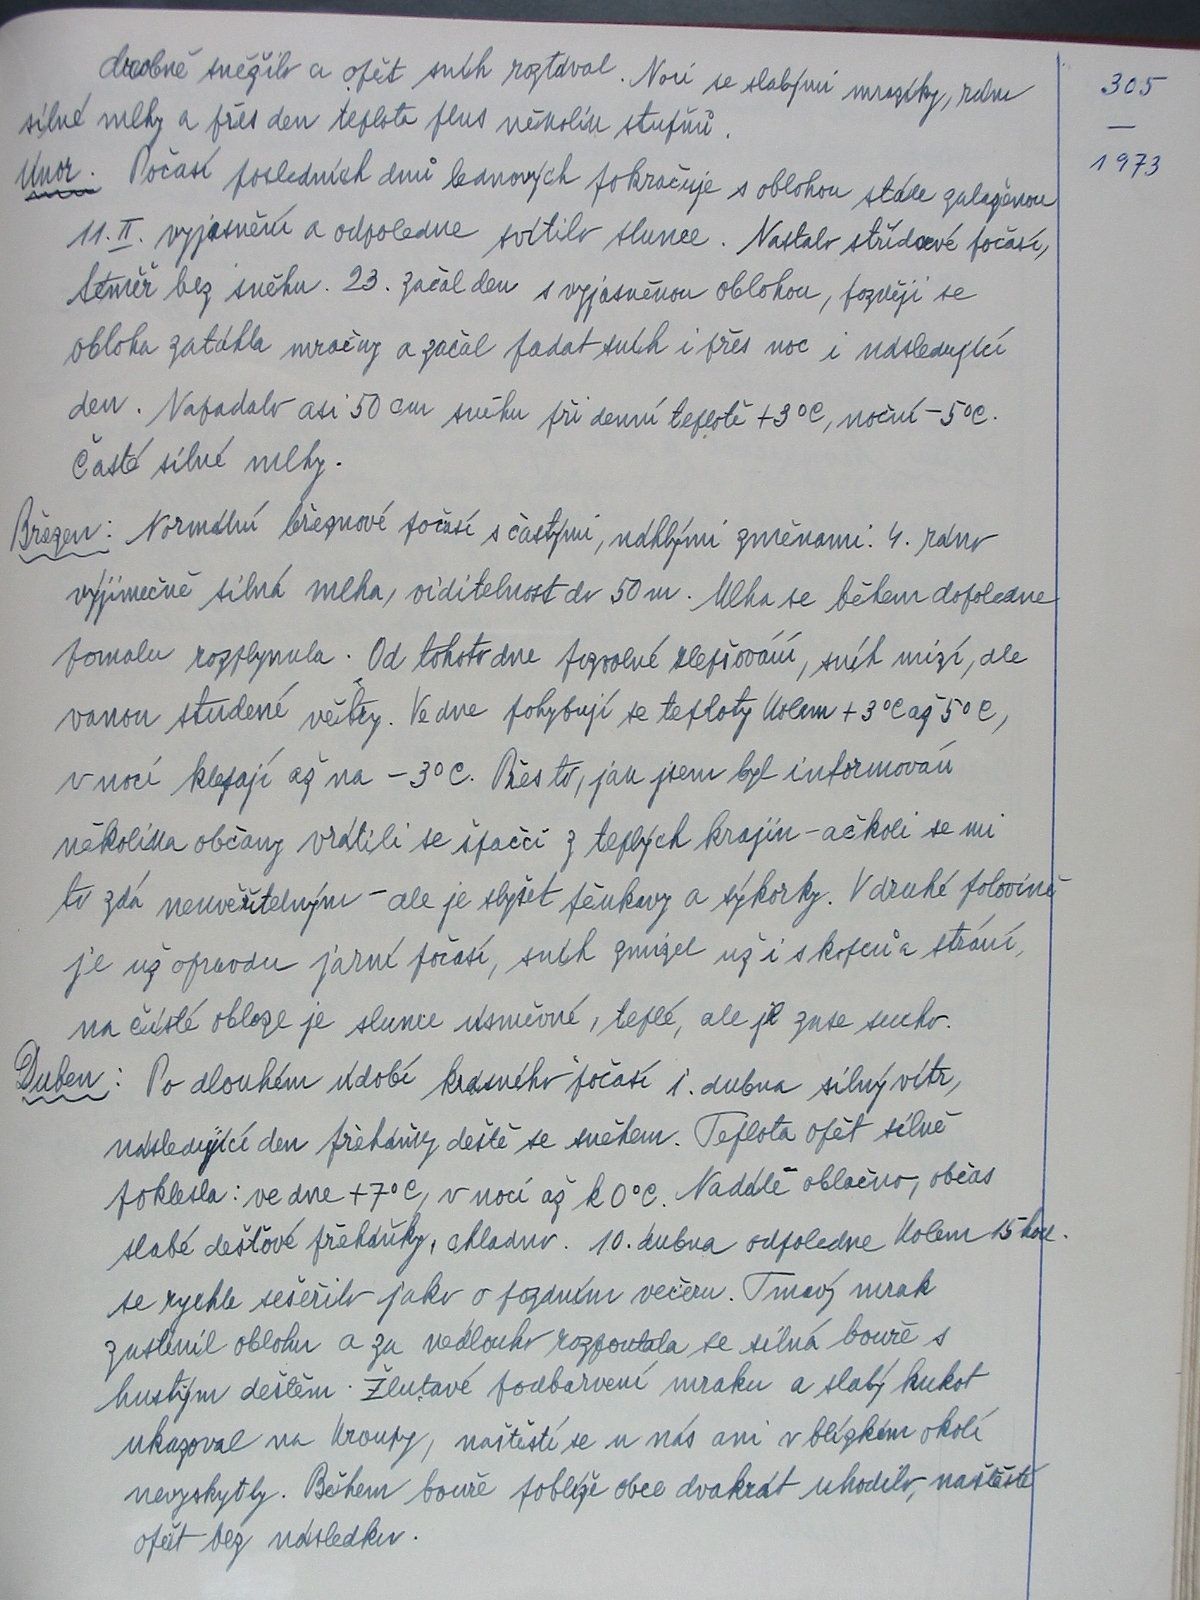 drobně sněžilo a opět sníh roztával. Noci se slabými mrazíky, ráno
305
silné mlhy a přes den teplota plus několik stupňů.
1973
Únor. Počasí posledních dnů lednových pokračuje s oblohou stále zataženou
11. II. vyjasnění a odpoledne svítilo slunce. Nastalo střídavé počasí,
téměř bez sněhu. 23. začal den s vyjasněnou oblohou, později se
obloha zatáhla mračny a začal padat sníh i přes noc i následující
den. Napadalo asi 50 cm sněhu při denní teplotě +3°C, noční -5°C.
Časté silné mlhy.
Březen: Normální březnové počasí s častými, náhlými změnami. 4. ráno
výjimečně silná mlha, viditelnost do 50 m. Mlha se během dopoledne
pomalu rozplynula. Od tohoto dne pozvolné zlepšování, sníh mizí, ale
vanou studené větry. Ve dne pohybují se teploty kolem +3°C až 5°C,
v noci klesají až na -3°C. Přes to, jak jsem byl informován
několika občany vrátili se špačci z teplých krajin - ačkoli se mi
to zdá neuvěřitelným - ale je slyšet pěnkavy a sýkorky. V druhé polovině
je už opravdu jarní počasí, sníh zmizel už i s kopců a strání,
na čisté obloze je slunce úsměvné, teplé, ale je zase sucho.
Duben: Po dlouhém údobí krásného počasí 1. dubna silný vítr,
následující den přeháňky deště se sněhem. Teplota opět silně
poklesla: ve dne +7°C, v noci až k 0°C. Nadále oblačno, občas
slabé dešťové přeháňky, chladno. 10. dubna odpoledne kolem 15 hod.
se rychle sešeřilo jako o pozdním večeru. Tmavý mrak
zastínil oblohu a za nedlouho rozpoutala se silná bouře s
hustým deštěm. Žlutavé podbarvení mraku a slabý hukot
ukazoval na kroupy, naštěstí se u nás ani v blízkém okolí
nevyskytly. Během bouře poblíže obce dvakrát uhodilo, naštěstí
opět bez následku.